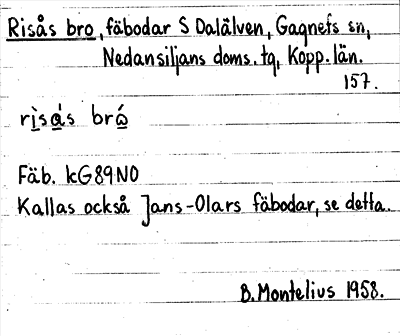 Risås bro, fäbodar S Dalälven, Gagnefs sn,
Nedansiljans doms. tg, Kopp. län.
157.
risås brö
Fäb. kG89NO
Kallas också Jans-Olars fäbodar, se detta.
B. Montelius 1958.